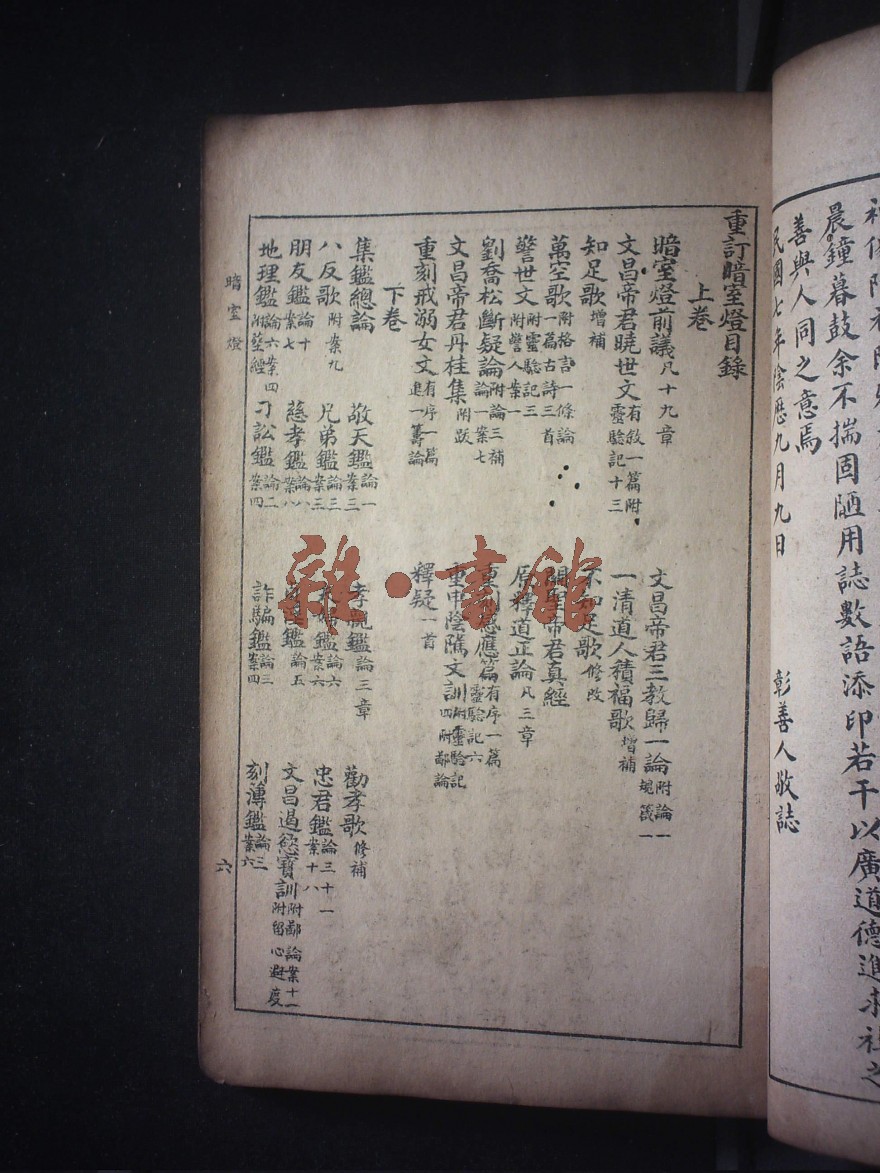 晨鐘暮鼓余不揣固陋用誌數語添印若干以廣道德進
善與人同之意焉
民國七年陰歷九月九日 彰善人敬誌
重訂暗室燈目錄
上卷
暗室燈前議凡十九章 文昌帝君三教歸一論附論一規箴一
文昌帝君曉世文有敘一篇附靈驗記十三 一清道人積福歌增補
知足歌增補 不知足歌修改
萬空歌附格言一條論一篇古詩三首 關聖帝君真經
警世文附靈驗記三附警人案一 原釋道正論凡三章
劉喬松斷疑論附論三補論一案七 重刻感應篇有序一篇靈驗記六
文昌帝君丹桂集附跋 重申陰隲文訓附靈驗記四附鄙論
重刻戒溺女文有序一篇進一籌論 釋疑一首
下卷
集鑑總論 敬天鑑論一案三 孝親鑑論三章 勸孝歌修補
八反歌附案九 兄弟鑑論三案三 夫婦鑑論六案六 忠君鑑論三十一案十八
朋友鑑論十案七 慈孝鑑論八案八 鑑論五 文昌遏慾寶訓附鄙論案十一附留心避度
地理鑑論六案四附葬經 刁訟鑑論二案四 詐騙鑑論三案四 刻薄鑑論三案六
暗室燈
六
雜·書館